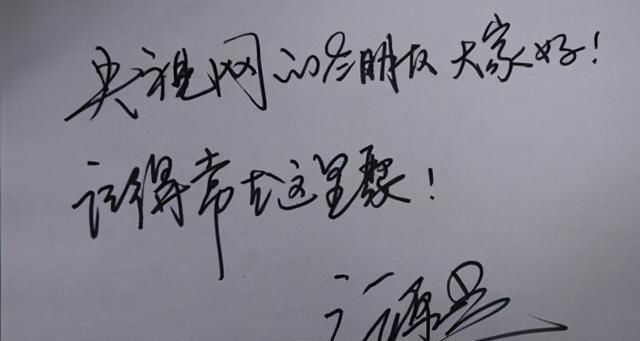 央视网的老朋友大家好！
记得常在这里聚！